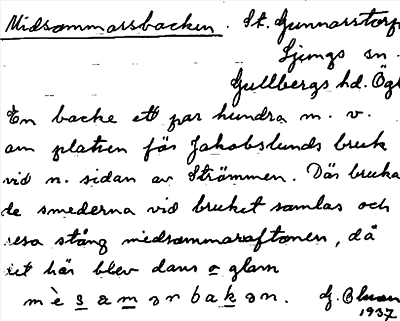 Midsommarsbacken. St. Gunnarstorp
Ljungs sn.
Gullbergs hd. Ögl
En backe ett par hundra m. v.
om platsen för Jakobslunds bruk
vid n. sidan av Strömmen. Där bruka
de smederna vid bruket samlas och
resa stång midsommaraftonen, då
det här blev dans o glam
mèsamәnbakәn.
1937